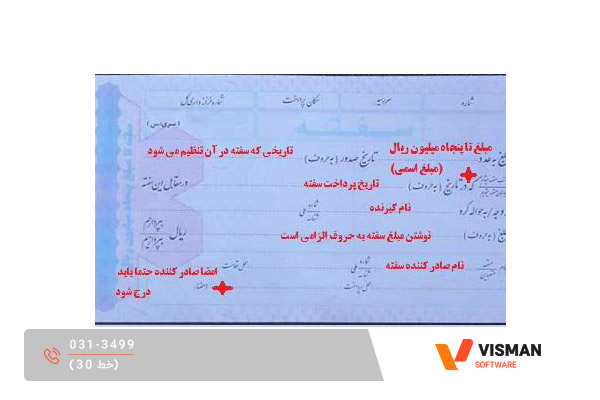 شماره سررسید مکان پرداخت شماره خزانه داری کل
سفته
(سری/س)
مبلغ تا پنجاه میلیون ریال تاریخ صدور (به حروف) تاریخی که سفته در آن تنظیم می شود
(مبلغ اسمی)
که در تاریخ (به حروف) تاریخ پرداخت سفته در مقابل این سفته
وجه / به حواله کرد نام گیرنده شماره ملی شناسه بپردازم
(به حروف) نوشتن مبلغ سفته به حروف الزامی است ریال بپردازیم
نام صادر کننده سفته شماره ملی شناسه محل اقامت
امضا صادر کننده حتما باید
محل پرداخت امضاء
درج شود
031-3499
(30 خط)
VISMAN
SOFTWARE